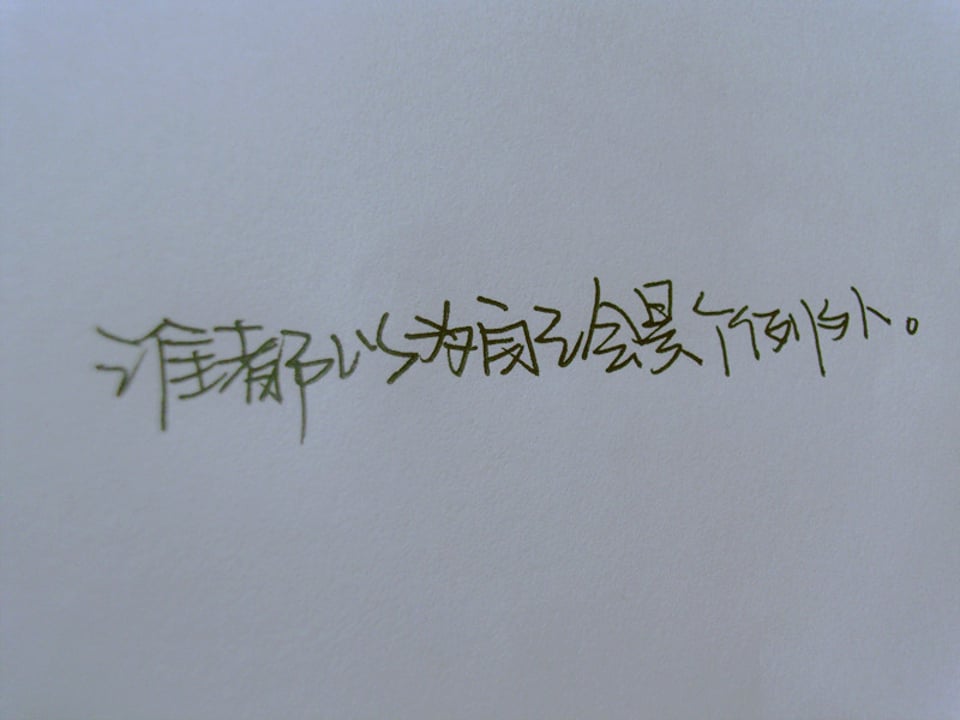 谁都以为自己会是个例外。